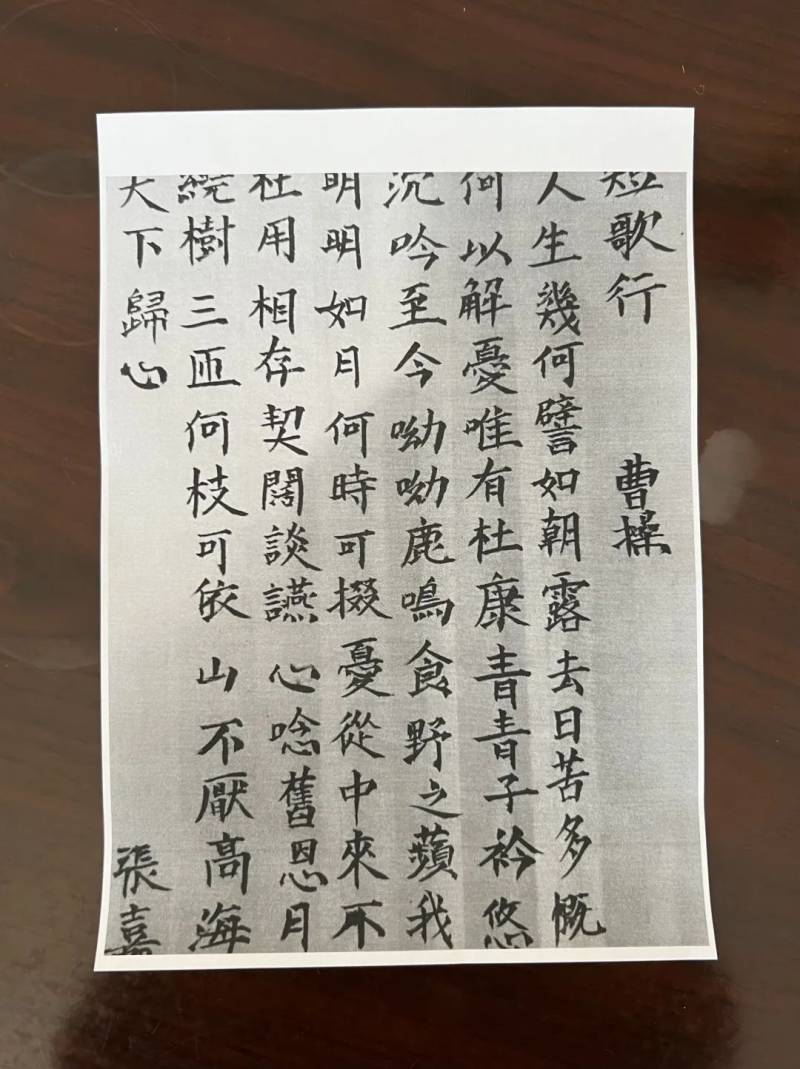 短歌行 曹操
人生幾何譬如朝露去日苦多慨
何以解憂唯有杜康青青子衿悠
沉吟至今呦呦鹿鳴食野之蘋我
明明如月何時可掇憂從中來不
枉用相存契闊談讌心唸舊恩月
繞樹三匝何枝可依山不厭高海
天下歸心 張嘉